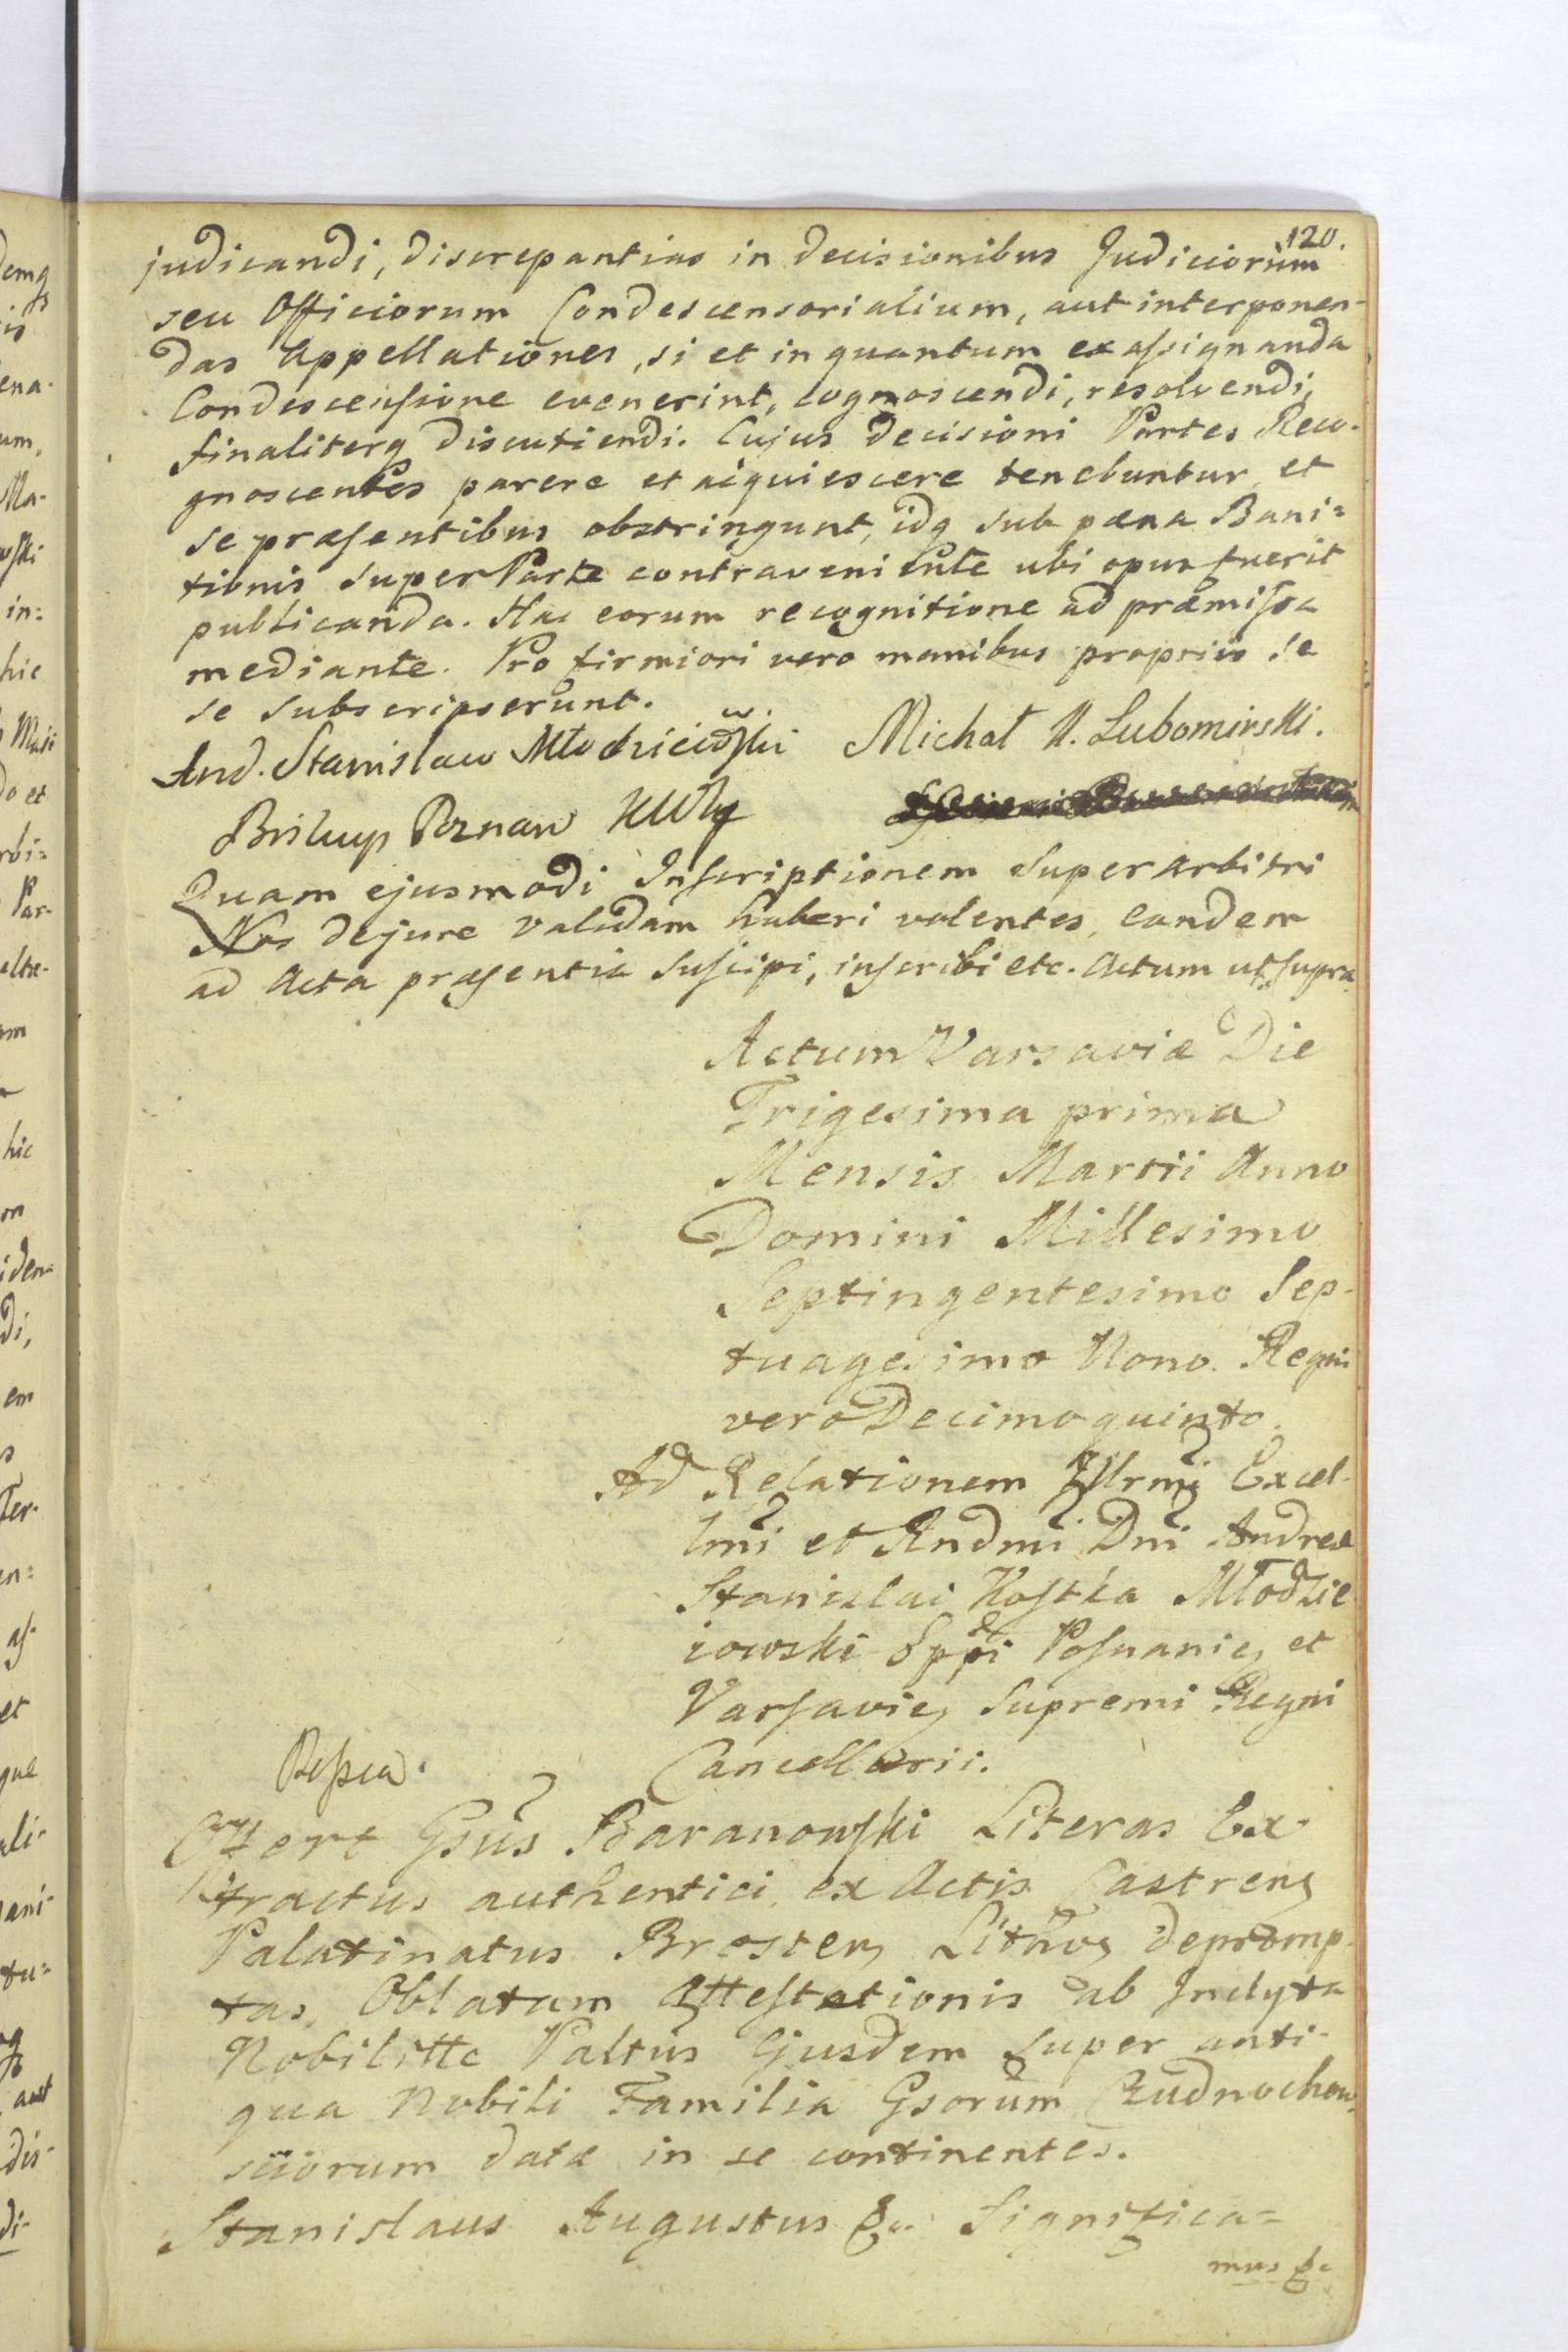 120.
judicandi, discrepantias in decisionibus Judiciorum
seu Officiorum Condescensorialium, aut interponen-
das Appellationes, si et in quantum ex assignanda
Condescensione evenerint, cognoscendi, resolvendi,
finaliterq discutiendi. Cujus decisioni Partes Reco-
gnoscentes parere et acquiescere tenebuntur, et
se præsentibus obstringunt, idq sub pæna Bani=
tionis super Parte contraveniente ubi opus fuerit
publicanda. Hac eorum recognitione ad præmissa
mediante. Pro firmiori vero manibus propriis se
se subscripserunt.
And. Stanislaw Młodzieiowski Michał Lubomirski.
Biskup Poznan
Quam ejusmodi Inscriptionem super arbitri
Nos de jure validam haberi volentes, eandem
ad Acta præsentia suscipi, inscribi etc. Actum ut supra
Actum Varsaviæ Die
Trigesima prima
Mensis Martii Anno
Domini Millesimo
Septingentesimo Sep-
tuagesimo Nono. Regni
vero Decimo quinto.
Ad Relationem Illrmi Excel-
lmi et Rndmi Dni Andreæ
Stanislai Kostka Młodzie
iowski Eppi Posnanię et
Varsavię Supremi Regni
Cancellarii.
Offert Gsus Baranowski Literas Ex
tractus authentici ex Actis Castrens
Palatinatus Bresten Lithvo depromp
tas, Oblatam Attestationis ab Inclyta
Nobilitte Paltus Ejusdem super anti-
qua Nobili Familia Gsorum Rudnochow
sciorum datæ in se continentes.
Stanislaus Augustus &c. Significa=
mus &c